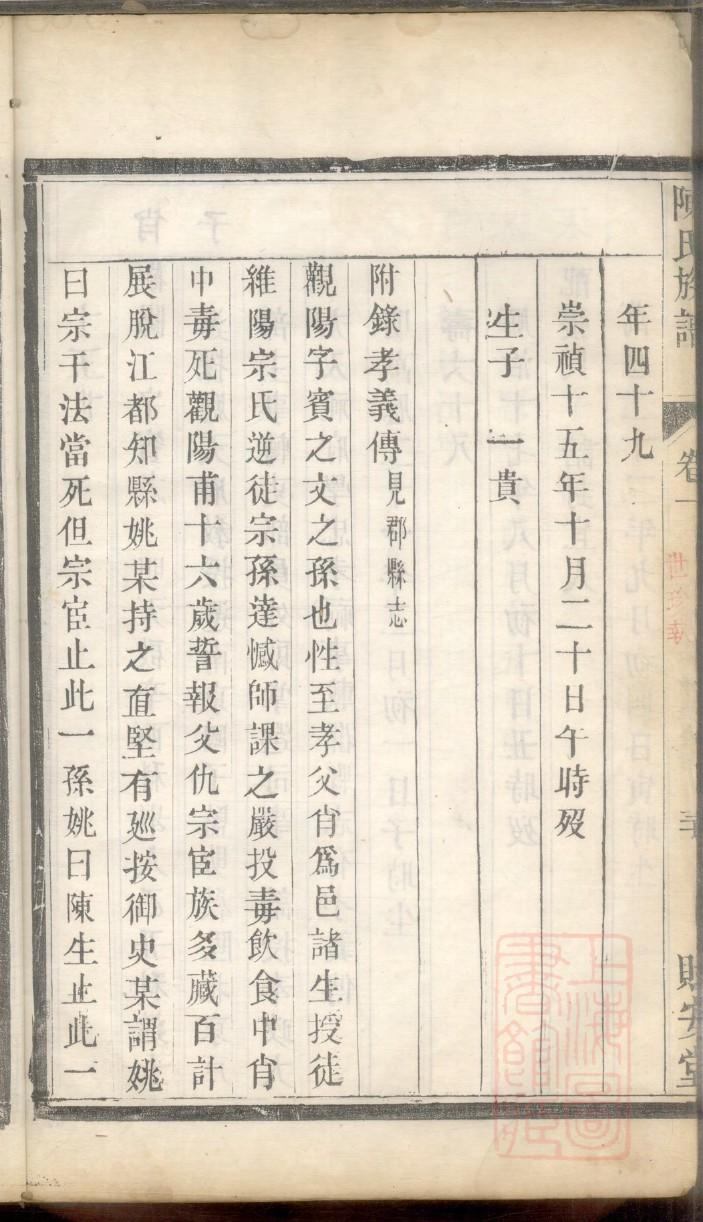 陳氏族譜 卷一 賜安堂
年四十九
崇禎十五年十月二十日午時歿
生子 一貴
附錄孝義傳見郡縣志
觀陽字賓之文之孫也性至孝父肖爲邑諸生授徒
維陽宗氏逆徒宗孫達憾師課之嚴投毒飲食中肖
中毒死觀陽甫十六歲誓報父仇宗宦族多藏百計
展脫江都知縣姚某持之直堅有廵按御史某謂姚
曰宗干法當死但宗宦止此一孫姚曰陳生止此一
上海圖書館藏